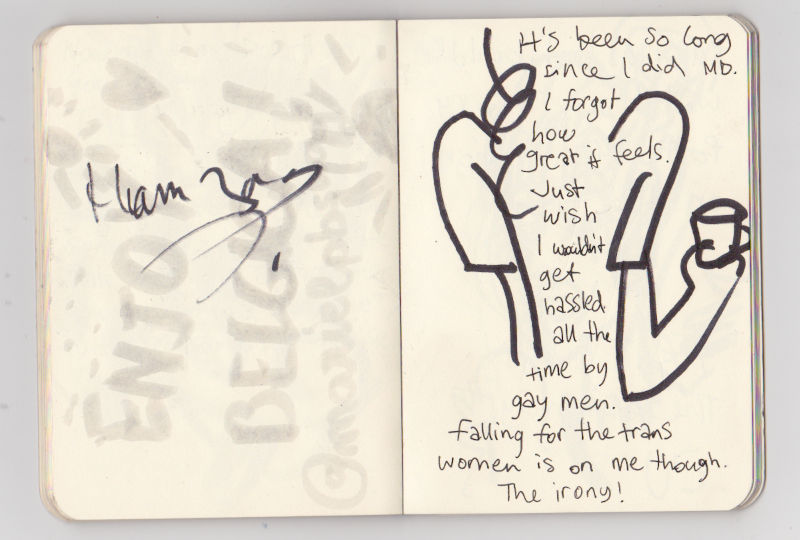 It's been so long
since I did MD.
I forgot
how
great it feels.
Just
wish
I wouldn't
get
hassled
all the
time by
gay men.
Falling for the trans
women is on me though.
The irony!